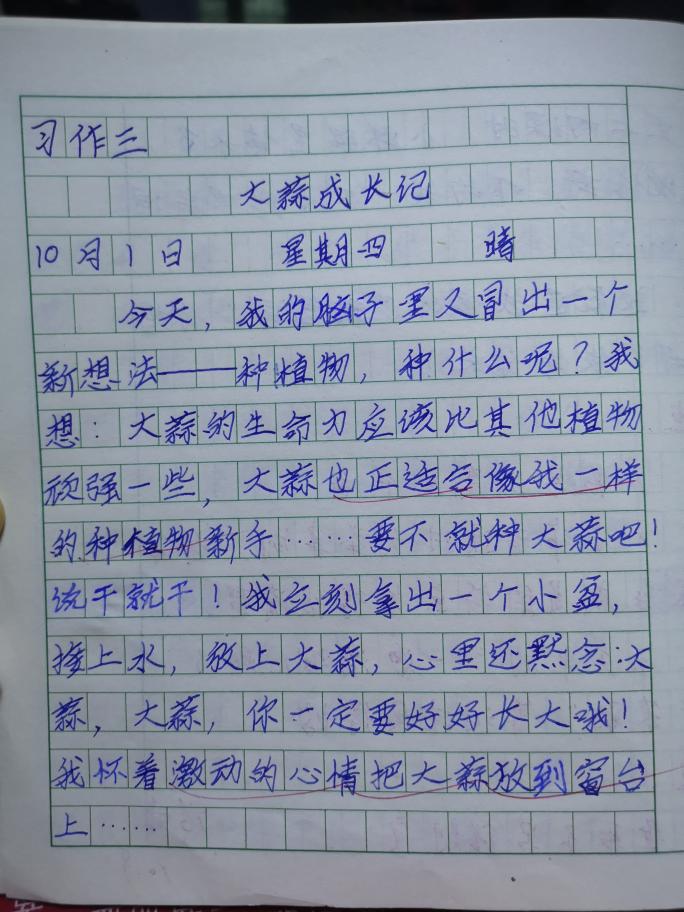 习作三
大蒜成长记
10月1日 星期四 晴
今天,我的脑子里又冒出一个
新想法——种植物,种什么呢?我
想:大蒜的生命力应该比其他植物
顽强一些,大蒜也正适合像我一样
的种植物新手……要不就种大蒜吧!
说干就干!我立刻拿出一个小盆,
接上水,放上大蒜,心里还默念:大
蒜,大蒜,你一定要好好长大哦!
我怀着激动的心情把大蒜放到窗台
上……